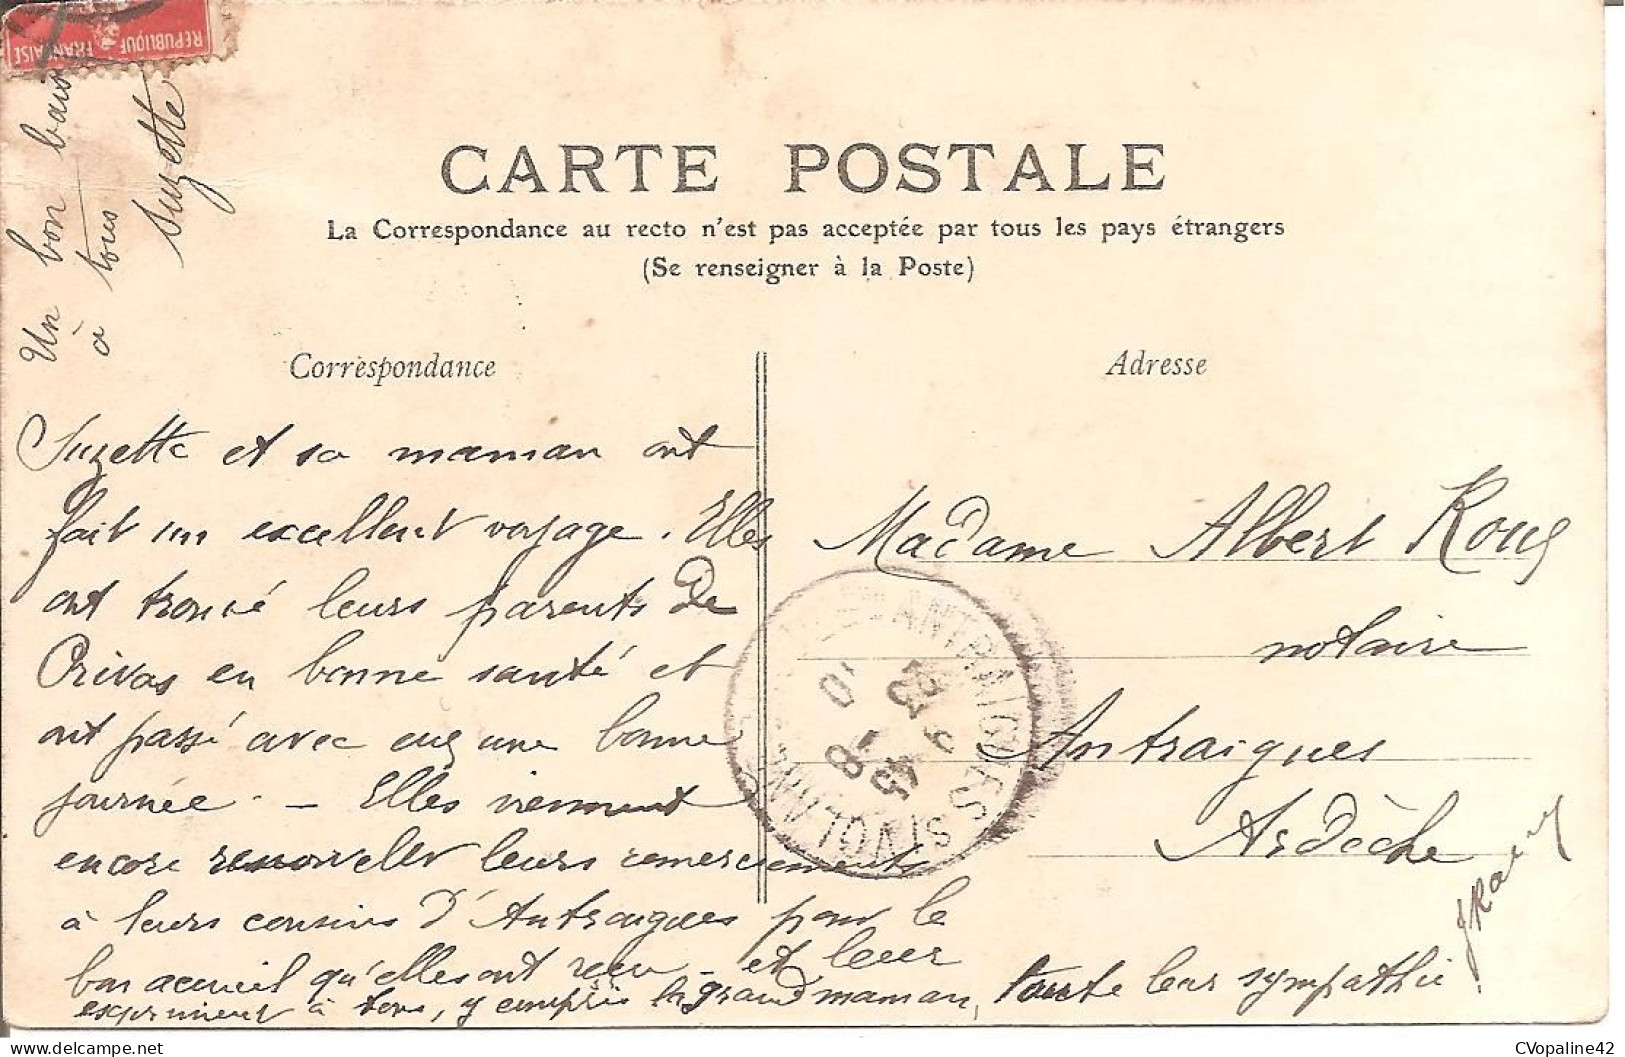 REPUBLIQUE FRANÇAISE
Un bon bais
à tous
Suzette
CARTE POSTALE
La Correspondance au recto n'est pas acceptée par tous les pays étrangers
(Se renseigner à la Poste)
Correspondance
Adresse
Suzette et sa maman ont
fait un excellent voyage. Elles
ont trouvé leurs parents de
Privas en bonne santé et
ont passé avec eux une bonne
journée. — Elles viennent
encore renouveler leurs remerciements
à leurs cousins d'Antraigues pour le
bon accueil qu'elles ont reçu et leur
expriment à tous, y compris la grand maman, toute leur sympathie.
Madame Albert Roux
notaire
Antraigues
Ardèche
ANTRAIGUES
S/VOLANE
CVopaline42